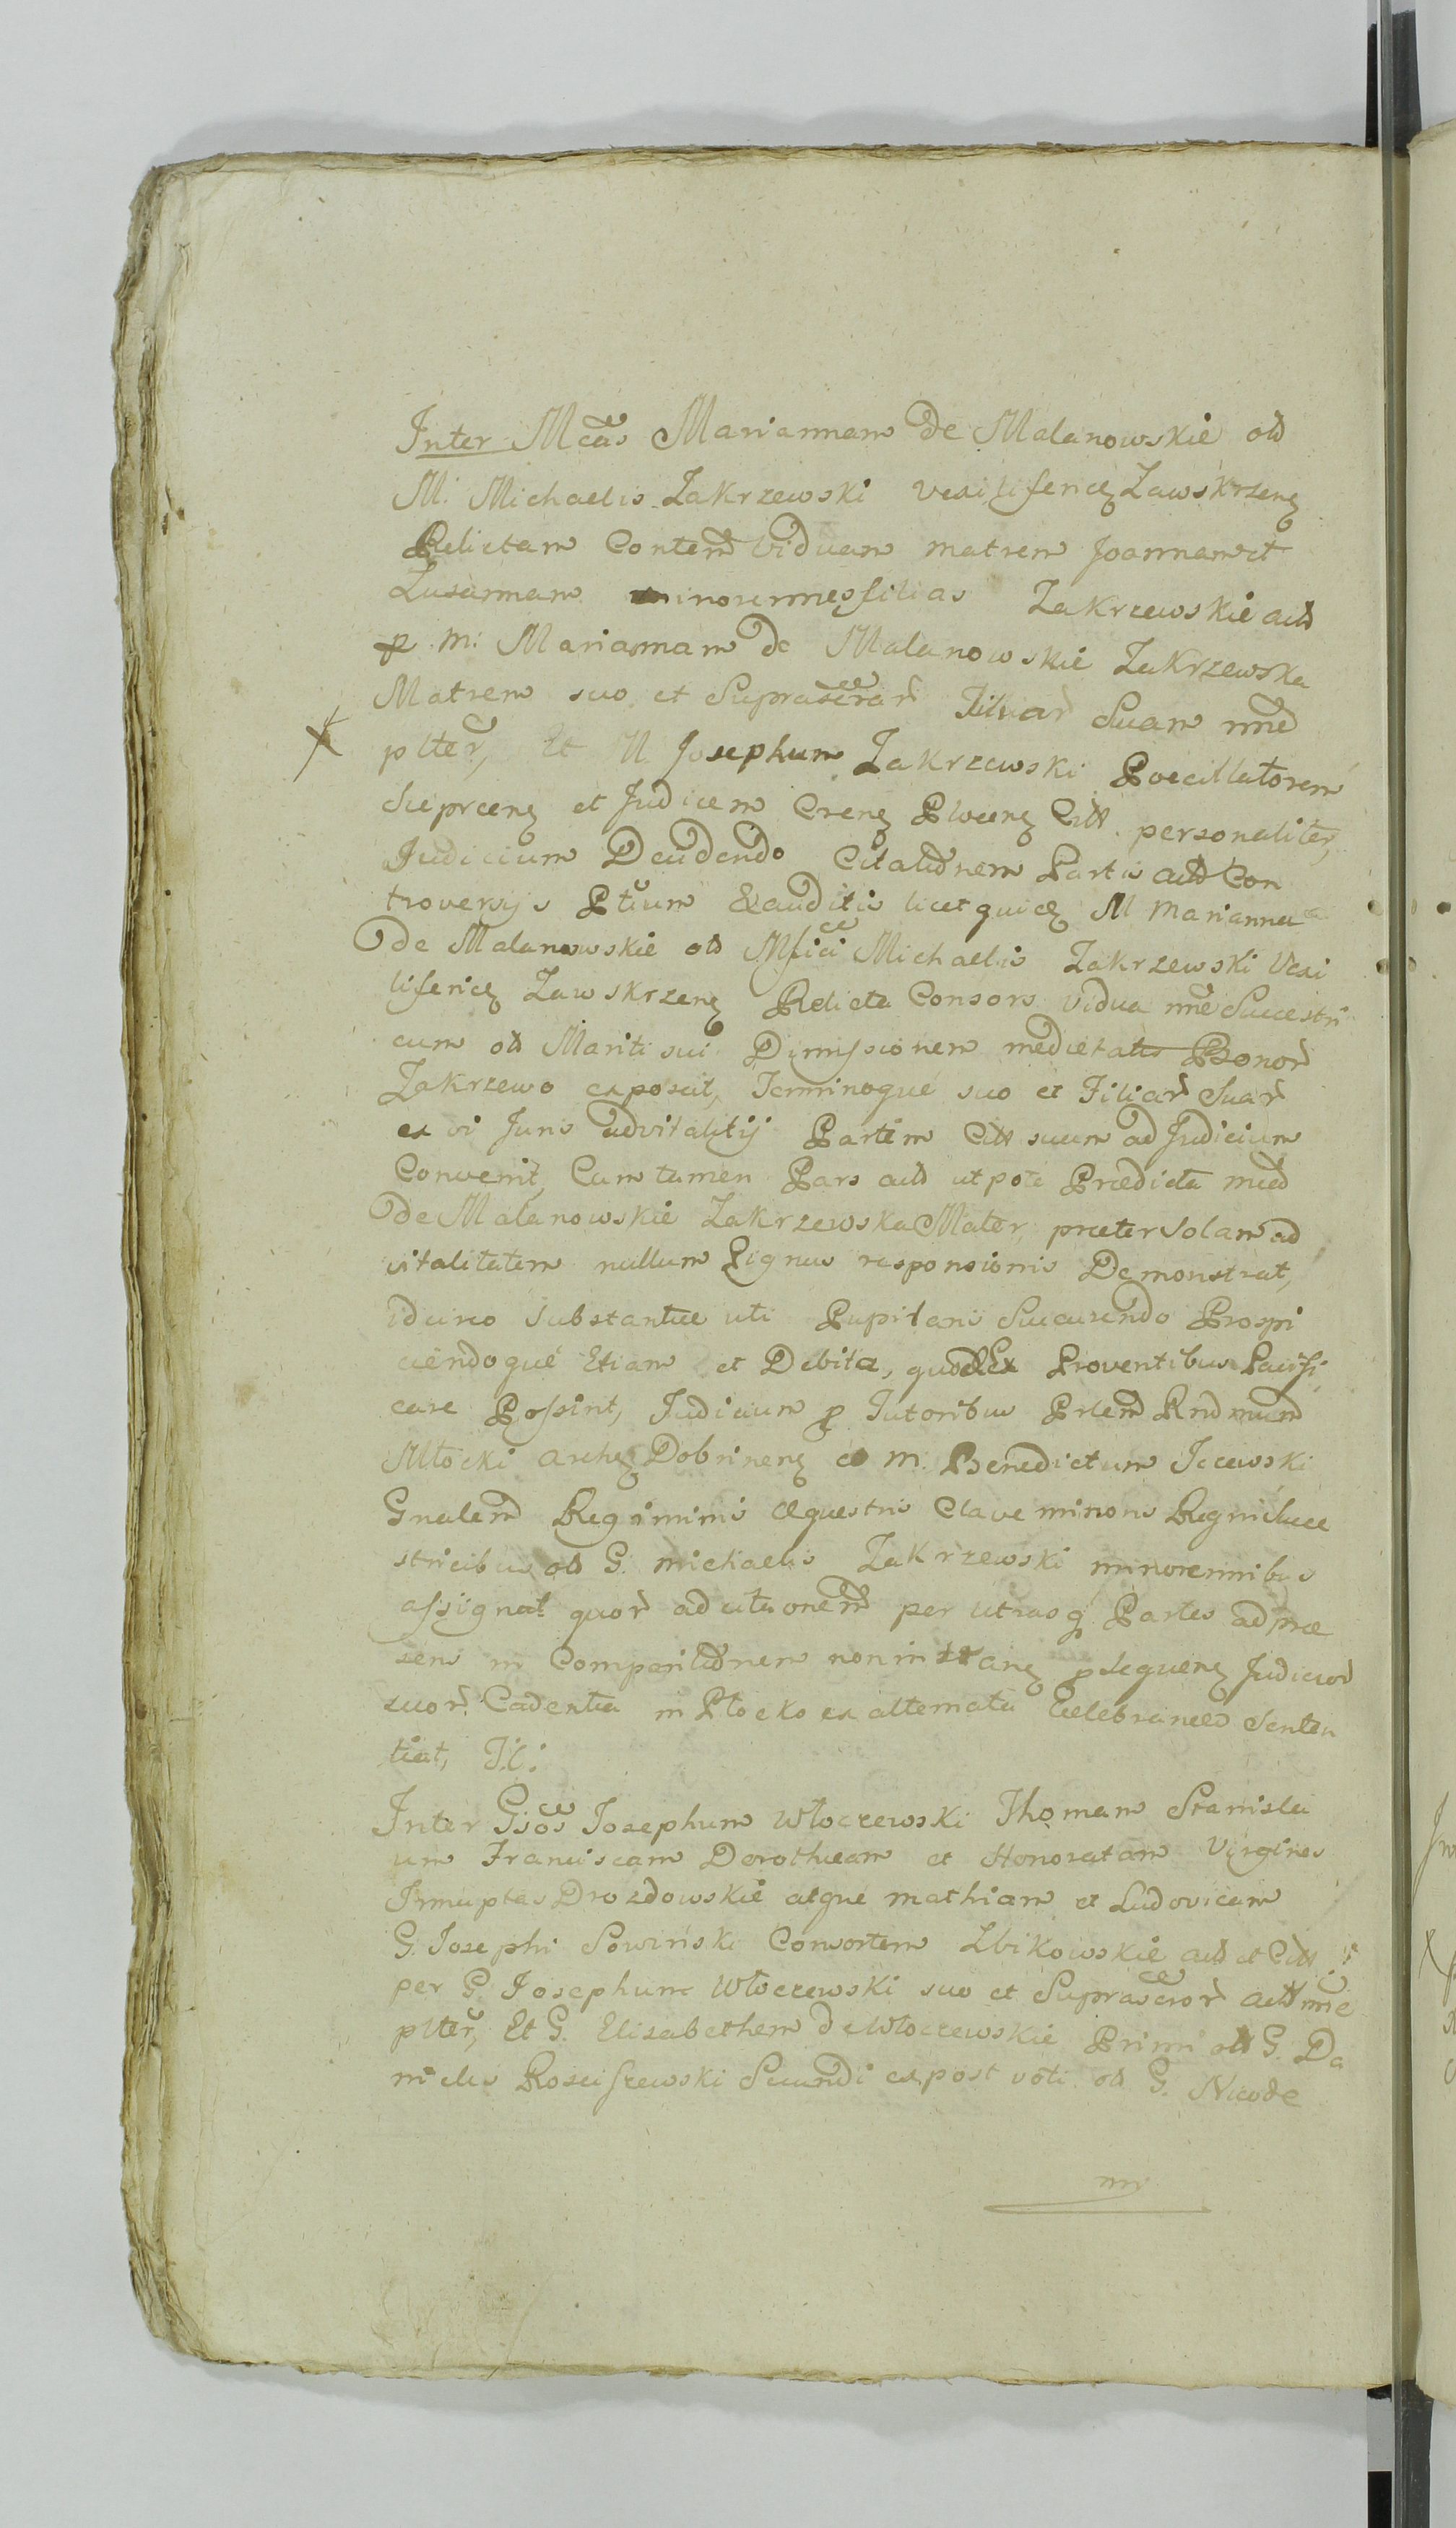 Inter Mcas Mariannam de Malanowskie old
M. Michaelis Zakrzewski Vexiliferiç Zawskrzenę
Relictam Contem Viduam matrem Joannam et
Zusannam minorennes filias Zakrzewskie actt
p. M: Mariannam de Malanowskie Zakrzewska
Matrem suo et Suprascrar Filiar Suar nne
plter, Et M Josephum Zakrzewski Pocillatorem
Sieprcenę et Judicem Crenę Plocenę Citt personaliter,
Judicium Decidendo Citationem Partis actt Con
troversijs Ptium Exauditis licet quidę M Marianna
de Malanowskie old Mfici Michaelis Zakrzewski Vexi
liferiç Zawskrzenę Relicta Consors Vidua nne Succestri
cum old Mariti sui Dimissionem medietatis Bonor
Zakrzewo exposcit, Terminoque suo et Filiar Suar
ex vi Juris advitalitij Partem Citt suum ad Judicium
Convenit, Cum tamen Pars actt utpote Prædicta
de Malanowskie Zakrzewska Mater, præter Solam ad
vitalitatem nullum Pignus responsionis Demonstrat,
idcirco Substantiæ uti Pupilari Succurendo Prospi
ciendoque Etiam et Debita, quod Ex Proventibus Pacifi
care Possint, Judicium p Tutoribus Rndmum
Młocki Dobrinenę et M. Benedictum Jeżewski
Gnalem Regiminis Equestris Clave minoris Regni Succe
stricibus old G. Michaelis Zakrzewski minorennibus
assignat quor ad citaonem per utrasq Partes ad præ
sens in Comparitionem non p sequenę Judicior
suor Cadentia in Płocko ex alternata Celebranda Senten
tiat, J.C:
Inter Gsos Josephum Włoczewski Thomam Stanisla
um Franciscam Dorotheam et Honoratam Virgines
Innuptas Drozdowskie atque Mathiam et Ludovicam
G. Josephi Sowiński Consortem Zbikowskie actt et Citt
per G. Josephum Włoczewski suo et Suprascror actt nne
plter, Et G. Elisabethem de Włoczewskie Primi old G. Da
nielis Rosciszewski Secundi expost voti old G. Nicode